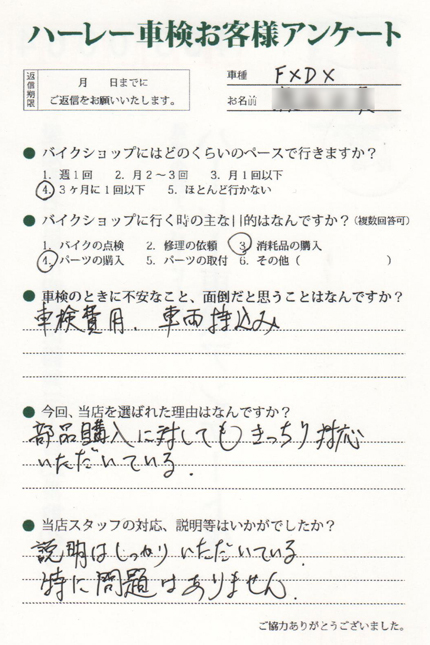 ハーレー車検お客様アンケート
返信期限
月　日までに
ご返信をお願いいたします。
車種 FXDX
お名前
● バイクショップにはどのくらいのペースで行きますか?
1. 週1回　2. 月2～3回　3. 月1回以下
4. 3ヶ月に1回以下　5. ほとんど行かない
● バイクショップに行く時の主な目的はなんですか?(複数回答可)
1. バイクの点検　2. 修理の依頼　3. 消耗品の購入
4. パーツの購入　5. パーツの取付　6. その他（　　　）
● 車検のときに不安なこと、面倒だと思うことはなんですか?
車検費用、車両持込み
● 今回、当店を選ばれた理由はなんですか?
部品購入に対してもきっちり対応
いただいている.
● 当店スタッフの対応、説明等はいかがでしたか?
説明はしっかりいただいている.
特に問題はありません.
ご協力ありがとうございました。